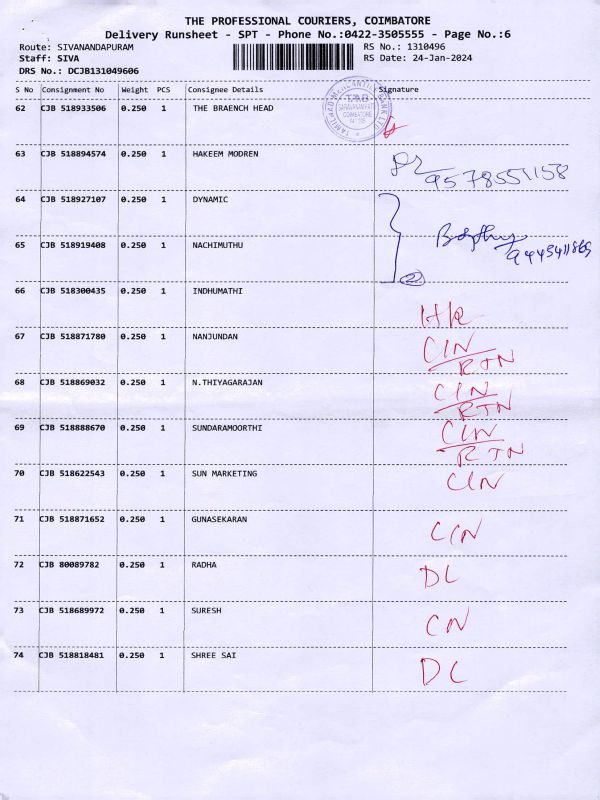 THE PROFESSIONAL COURIERS, COIMBATORE
Delivery Runsheet - SPT - Phone No.:0422-3505555 - Page No.:6
Route: SIVANANDAPURAM RS No.: 1310496
Staff: SIVA RS Date: 24-Jan-2024
DRS No.: DCJB131049606
S No Consignment No Weight PCS Consignee Details Signature
62 CJB 518933506 0.250 1 THE BRAENCH HEAD
TAMILNAD MERCANTILE BANK LTD
COIMBATORE
63 CJB 518894574 0.250 1 HAKEEM MODREN
9578551158
64 CJB 518927107 0.250 1 DYNAMIC
65 CJB 518919408 0.250 1 NACHIMUTHU
2
66 CJB 518300435 0.250 1 INDHUMATHI
67 CJB 518871780 0.250 1 NANJUNDAN CIN
RTN
68 CJB 518869032 0.250 1 N.THIYAGARAJAN CIN
RTN
69 CJB 518888670 0.250 1 SUNDARAMOORTHI CIN
RTN
70 CJB 518622543 0.250 1 SUN MARKETING CIN
71 CJB 518871652 0.250 1 GUNASEKARAN CIN
72 CJB 80089782 0.250 1 RADHA DL
73 CJB 518689972 0.250 1 SURESH CN
74 CJB 518818481 0.250 1 SHREE SAI DC